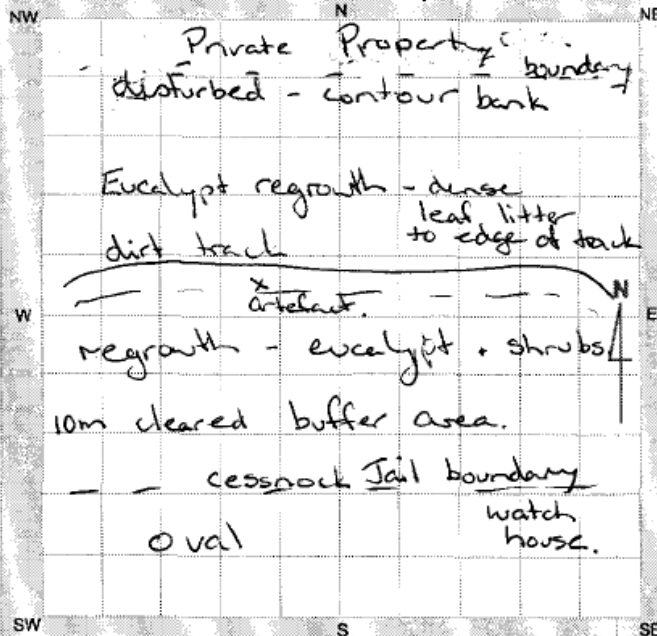 NW N NE
Private Property
boundary
disturbed - contour bank
Eucalypt regrowth - dense
leaf litter
to edge of track
dirt track
x
artefact.
N
W E
regrowth - eucalypt + shrubs
10m cleared buffer area.
cessnock Jail boundary
watch
house.
oval
SW S SE